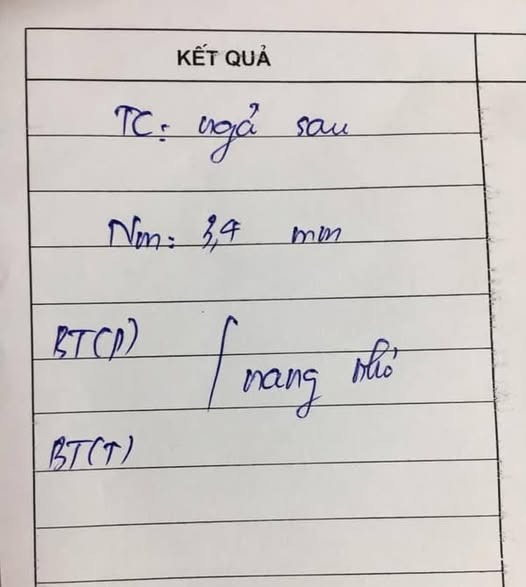 KẾT QUẢ
TC: ngả sau
Nm: 3,4 mm
BT(P)
nang nhỏ
BT(T)